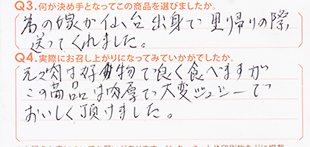 Q3.何が決め手となってこの商品を選びましたか。
弟の娘が仙台出身で里帰りの際、
送ってくれました。
Q4.実際にお召し上がりになってみていかがでしたか。
元々肉は好物で良く食べますが
この商品は肉厚で大変ジュシーで
おいしく頂けました。